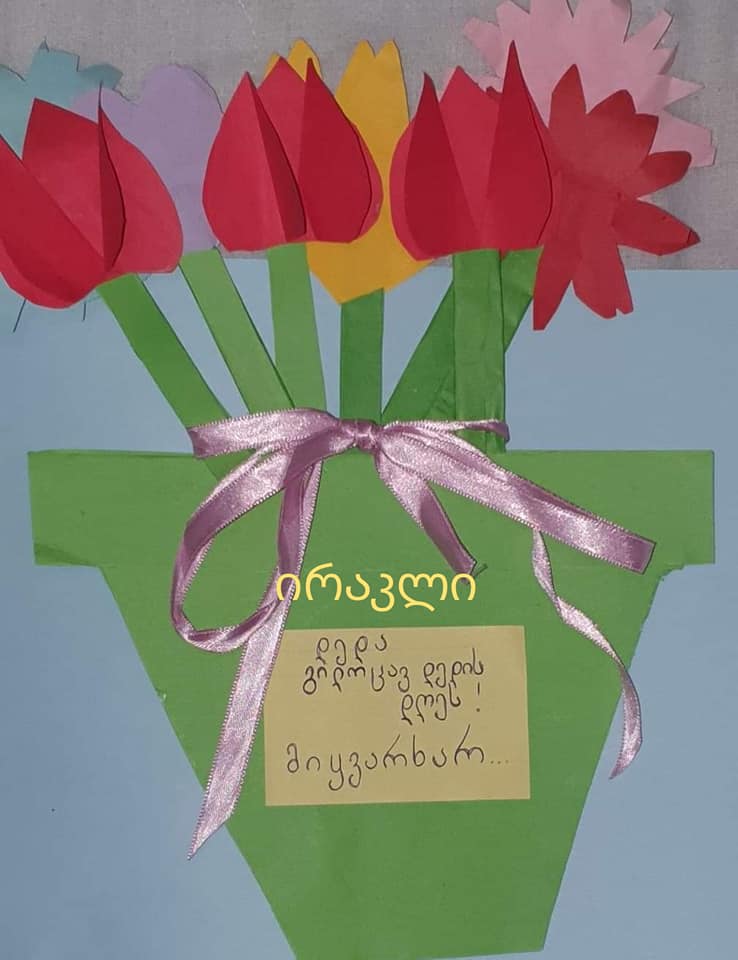 ირაკლი
დედა
გილოცავ დედის
დღეს!
მიყვარხარ...